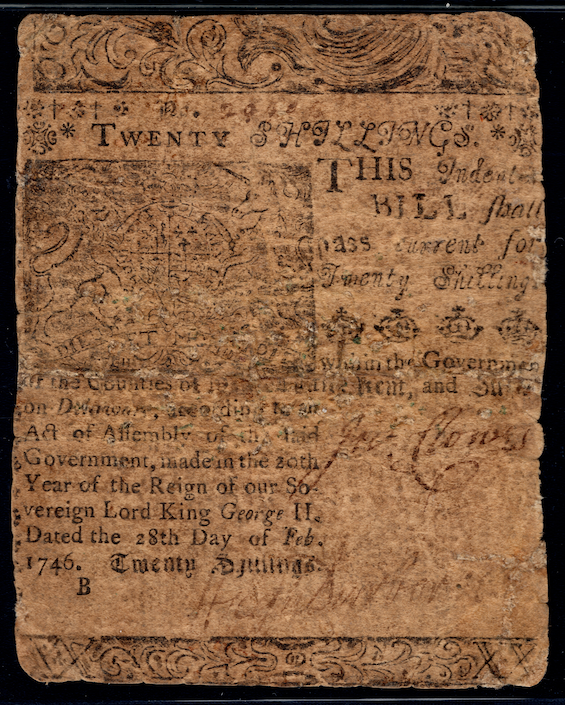 No.
TWENTY SHILLINGS.
THIS Indented
BILL shall
pass current for
Twenty Shillings
within the Government
of the Counties of Kent, and
on Delaware, according to an
Act of Assembly of the said
Government, made in the 20th
Year of the Reign of our So-
vereign Lord King George II.
Dated the 28th Day of Feb.
1746. Twenty Shillings.
B
XX